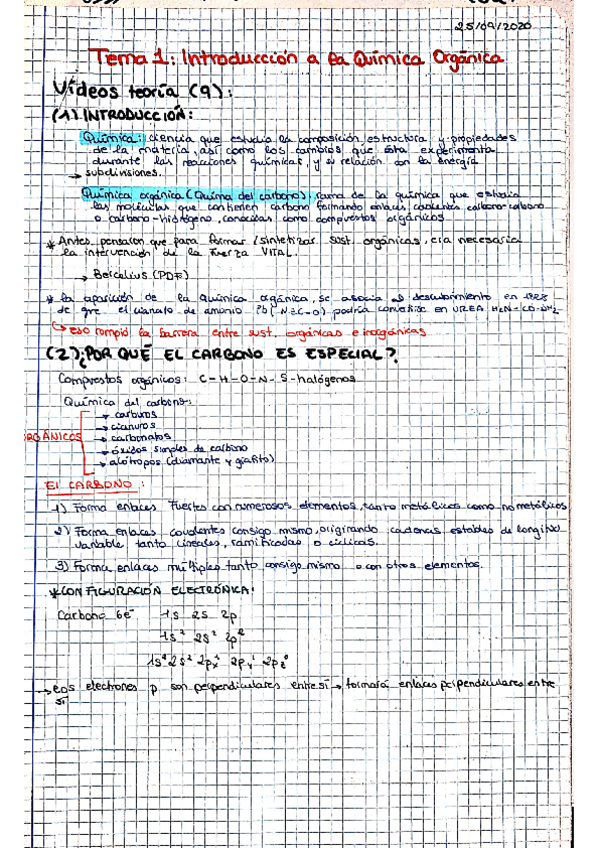 25/09/2020
Tema 1: Introducción a la Química Orgánica
Vídeos teoría (9):
(1) INTRODUCCIÓN:
Química: ciencia que estudia la composición, estructura y propiedades
de la materia, así como los cambios que ésta experimenta
durante las reacciones químicas, y su relación con la energía
→ subdivisiones.
Química orgánica (Química del carbono): rama de la química que estudia
las moléculas que contienen carbono formando enlaces covalentes carbono-carbono
o carbono-hidrógeno, conocidas como compuestos orgánicos
* Antes pensaron que para formar/sintetizar sust. orgánicas, era necesaria
la intervención de la Fuerza VITAL.
→ Bercelius (PDF)
* La aparición de la química orgánica, se asocia al descubrimiento en 1828
de que el cianato de amonio Pb(N≡C-O) podría convertirse en UREA H2N-CO-NH2
↳ eso rompió la barrera entre sust. orgánicas e inorgánicas
(2) ¿POR QUÉ EL CARBONO ES ESPECIAL?
Compuestos orgánicos: C-H-O-N-S-halógenos
Química del carbono:
→ carburos
→ cianuros
ORGÁNICOS → carbonatos
→ óxidos simples de carbono
→ alótropos (diamante y grafito)
El CARBONO:
1) Forma enlaces fuertes con numerosos elementos, tanto metálicos como no metálicos
2) Forma enlaces covalentes consigo mismo, originando cadenas estables de longitud
variable tanto lineales, ramificadas o cíclicas.
3) Forma enlaces múltiples tanto consigo mismo o con otros elementos.
* CONFIGURACIÓN ELECTRÓNICA:
Carbono 6e⁻ 1s 2s 2p
1s² 2s² 2p²
1s² 2s² 2px¹ 2py¹ 2pz⁰
→ Los electrones p son perpendiculares entre sí → formará enlaces perpendiculares entre
sí